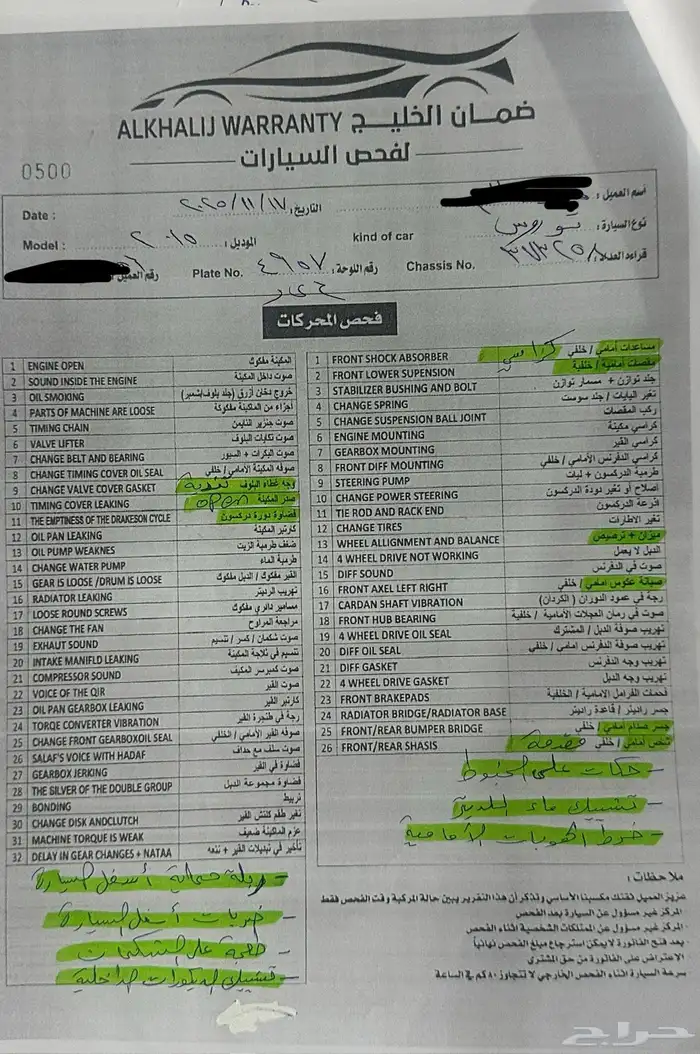 ضمان الخليج ALKHALIJ WARRANTY
لفحص السيارات
0500
اسم العميل :
التاريخ: ٢٠٢٥/١١/١٧ Date :
نوع السيارة: توروس kind of car
الموديل: ٢٠١٥ Model :
قراءة العداد: ٣٧٣٢٥٨ Chassis No.
رقم اللوحة: ٤٩٥٧ Plate No.
رقم العميل
فحص المحركات
1 ENGINE OPEN المكينة مفكوك
2 SOUND INSIDE THE ENGINE صوت داخل المكينة
3 OIL SMOKING خروج دخان أزرق (جلد بلوف/شمبر)
4 PARTS OF MACHINE ARE LOOSE أجزاء من الماكينة مفكوكة
5 TIMING CHAIN صوت جنزير التايمن
6 VALVE LIFTER صوت تكايات البلوف
7 CHANGE BELT AND BEARING صوت البكرات + السيور
8 CHANGE TIMING COVER OIL SEAL صوفه المكينة الأمامي / خلفي
9 CHANGE VALVE COVER GASKET وجه غطاء البلوف
10 TIMING COVER LEAKING صدر المكينة open
11 THE EMPTINESS OF THE DRAKESON CYCLE فضاوة دورة دركسون
12 OIL PAN LEAKING كارتير المكينة
13 OIL PUMP WEAKNES ضعف طرمبة الزيت
14 CHANGE WATER PUMP طرمبة الماء
15 GEAR IS LOOSE /DRUM IS LOOSE القير مفكوك / الدبل مفكوك
16 RADIATOR LEAKING تهريب الرديتر
17 LOOSE ROUND SCREWS مسامير دائري مفكوك
18 CHANGE THE FAN مراجعة المراوح
19 EXHAUT SOUND صوت شكمان / كسر / تنسيم
20 INTAKE MANIFLD LEAKING تنسيم في ثلاجة المكينة
21 COMPRESSOR SOUND صوت كمبرسر المكيف
22 VOICE OF THE QIR صوت القير
23 OIL PAN GEARBOX LEAKING كارتير القير
24 TORQE CONVERTER VIBRATION رجة في طنجرة القير
25 CHANGE FRONT GEARBOXOIL SEAL صوفه القير الأمامي / الخلفي
26 SALAF'S VOICE WITH HADAF صوت سلف مع حداف
27 GEARBOX JERKING فضاوة في القير
28 THE SILVER OF THE DOUBLE GROUP فضاوة مجموعة الدبل
29 BONDING تربيط
30 CHANGE DISK ANDCLUTCH تغير طقم كلتش القير
31 MACHINE TORQUE IS WEAK عزم الماكينة ضعيف
32 DELAY IN GEAR CHANGES + NATAA تأخير في تبديلات القير + نتعه
1 FRONT SHOCK ABSORBER مساعدات أمامي / خلفي كراسي
2 FRONT LOWER SUPENSION مقصات أمامية / خلفية
3 STABILIZER BUSHING AND BOLT جلد توازن + مسمار توازن
4 CHANGE SPRING تغير اليايات / جلد سوست
5 CHANGE SUSPENSION BALL JOINT ركب المقصات
6 ENGINE MOUNTING كراسي مكينة
7 GEARBOX MOUNTING كراسي القير
8 FRONT DIFF MOUNTING كراسي الدفرنس الأمامي / خلفي
9 STEERING PUMP طرمبة الدركسون + ليات
10 CHANGE POWER STEERING إصلاح أو تغير دودة الدركسون
11 TIE ROD AND RACK END اذرعة الدركسون
12 CHANGE TIRES تغير الاطارات
13 WHEEL ALLIGNMENT AND BALANCE ميزان + ترصيص
14 4 WHEEL DRIVE NOT WORKING الدبل لا يعمل
15 DIFF SOUND صوت في الدفرنس
16 FRONT AXEL LEFT RIGHT صيانة عكوس أمامي / خلفي
17 CARDAN SHAFT VIBRATION رجة في عمود الدوران (الكردان)
18 FRONT HUB BEARING صوت في رمان العجلات الأمامية / خلفية
19 4 WHEEL DRIVE OIL SEAL تهريب صوفة الدبل / المشترك
20 DIFF OIL SEAL تهريب صوفة الدفرنس امامي / خلفي
21 DIFF GASKET تهريب وجه الدفرنس
22 4 WHEEL DRIVE GASKET تهريب وجه الدبل
23 FRONT BRAKEPADS فحمات الفرامل الامامية / الخلفية
24 RADIATOR BRIDGE/RADIATOR BASE جسر راديتر / قاعدة راديتر
25 FRONT/REAR BUMPER BRIDGE جسر صدام أمامي / خلفي
26 FRONT/REAR SHASIS شاص أمامي / خلفي مقدمة
- حكات على الجنوط
- تشييك ماء اللديتر
- خرط الهوبات الأمامية
- ربلة حماية أسفل السيارة
- ضربات أسفل السيارة
- طعجة على الشكمات
- تشييك الديكورات الداخلية
ملاحظات :
عزيز العميل ثقتك مكسبنا الأساسي وتذكر أن هذا التقرير يبين حالة المركبة وقت الفحص فقط
المركز غير مسؤول عن السيارة بعد الفحص
المركز غير مسؤول عن الممتلكات الشخصية أثناء الفحص
بعد فتح الفاتورة لا يمكن استرجاع مبلغ الفحص نهائياً
الاعتراض على الفاتورة من حق المشتري
سرعة السيارة اثناء الفحص الخارجي لا تتجاوز ٨٠ كم في الساعة
حراج